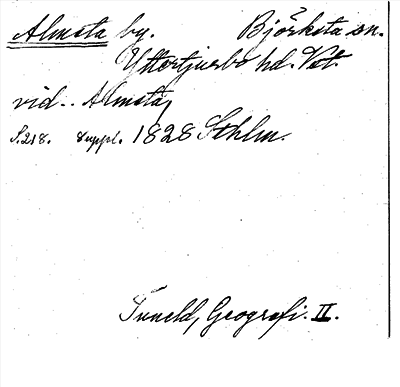 Almsta by. Björksta sn.
Yttertjurbo hd. Vst.
vid. Almsta,
S.218. suppl. 1828 Sthlm.
Tuneld, Geografi. II.